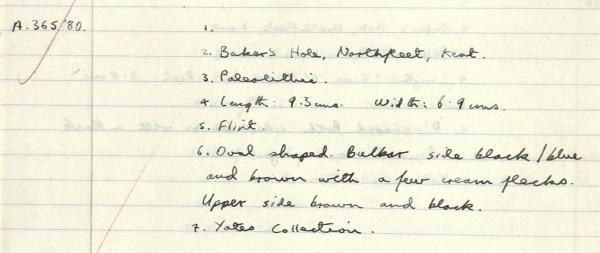 A.365'80. 1.
2. Baker's Hole, Northfleet, Kent.
3. Paleolithic.
4. Length: 9.3 cms. Width: 6.9 cms.
5. Flint.
6. Oval shaped. Bulbar side black/blue
and brown with a few cream flecks.
Upper side brown and black.
7. Yates Collection.